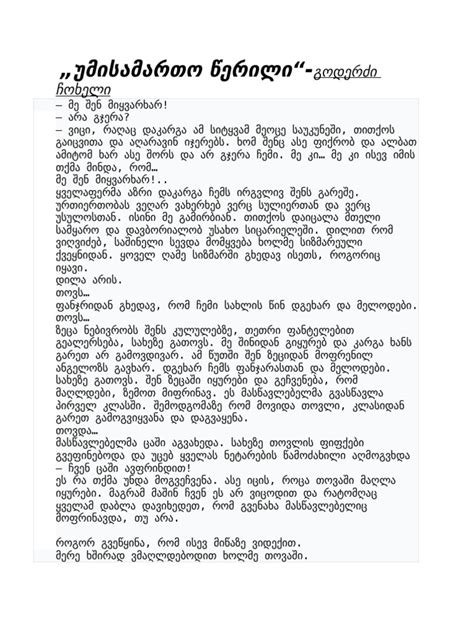 „უმისამართო წერილი“-გოდერძი
ჩოხელი
– მე შენ მიყვარხარ!
– არა გჯერა?
– ვიცი, რაღაც დაკარგა ამ სიტყვამ მეოცე საუკუნეში, თითქოს
გაიცვითა და აღარავინ იჯერებს. ხომ შენც ასე ფიქრობ და ალბათ
ამიტომ ხარ ასე შორს და არ გჯერა ჩემი. მე კი… მე კი ისევ იმის
თქმა მინდა, რომ…
მე შენ მიყვარხარ!..
ყველაფერმა აზრი დაკარგა ჩემს ირგვლივ შენს გარეშე.
ურთიერთობას ვეღარ ვახერხებ ვერც სულიერთან და ვერც
უსულოსთან. ისინი მე გამირბიან. თითქოს დაიცალა მთელი
სამყარო და დავბორიალობ უსახო სიცარიელეში. დილით რომ
ვიღვიძებ, საშინელი სევდა მომყვება ხოლმე სიზმარეული
ქვეყნიდან. ყოველ ღამე სიზმარში გხედავ ისეთს, როგორიც
იყავი.
დილა არის.
თოვს…
ფანჯრიდან გხედავ, რომ ჩემი სახლის წინ დგეხარ და მელოდები.
თოვს…
ზეცა ნებივრობს შენს კულულებზე, თეთრი ფანტელებით
გეალერსება, სახეზე გათოვს. მე შინიდან გიყურებ და კარგა ხანს
გარეთ არ გამოვდივარ. ამ წუთში შენ ზეციდან მოფრენილ
ანგელოზს გავხარ. დგეხარ ჩემს ფანჯარასთან და მელოდები.
სახეზე გათოვს. შენ ზეცაში იყურები და გეჩვენება, რომ
მაღლდები, ზემოთ მიფრინავ. ეს მასწავლებელმა გვასწავლა
პირველ კლასში. შემოდგომაზე რომ მოვიდა თოვლი, კლასიდან
გარეთ გამოგვიყვანა და დაგვაყენა.
თოვდა…
მასწავლებელმა ცაში აგვახედა. სახეზე თოვლის ფიფქები
გვეფინებოდა და უცებ ყველას ნეტარების წამოძახილი აღმოგვხდა
– ჩვენ ცაში ავფრინდით!
ეს რა თქმა უნდა მოგვეჩვენა. ასე იცის, როცა თოვაში მაღლა
იყურები. მაგრამ მაშინ ჩვენ ეს არ ვიცოდით და რატომღაც
ყველამ დაბლა დავიხედეთ, რომ გვენახა მასწავლებელიც
მოფრინავდა, თუ არა.
როგორ გვეწყინა, რომ ისევ მიწაზე ვიდექით.
მერე ხშირად ვმაღლდებოდით ხოლმე თოვაში.